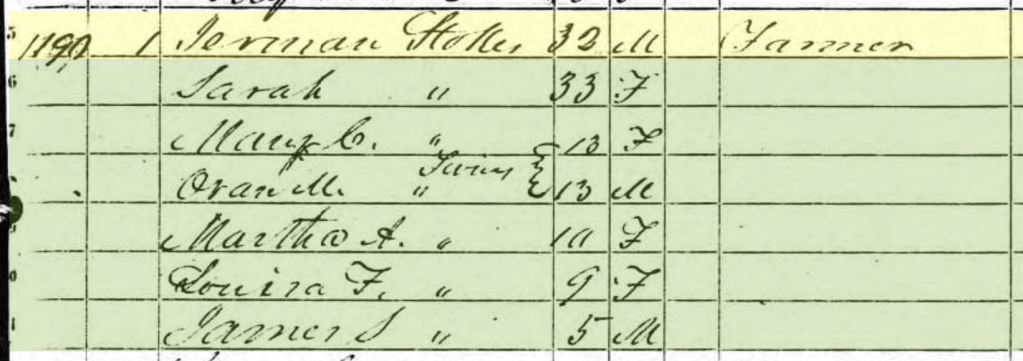 1190 1 Jerman Stokes 32 M Farmer
Sarah " 33 F
Mary C. " 13 F
Twins
Oran M. " 13 M
Martha A. " 10 F
Louiza F. " 9 F
James S " 5 M